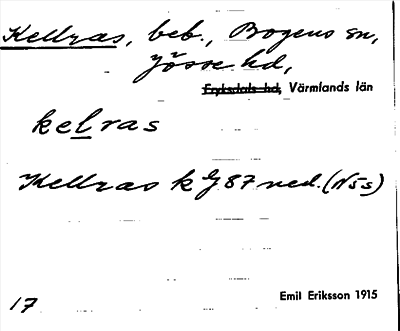 Kellras, beb., Bogens sn,
Jösse hd,
Fryksdals hd, Värmlands län
kelras
Kellras k 87 ned. (N5s)
Emil Eriksson 1915
17